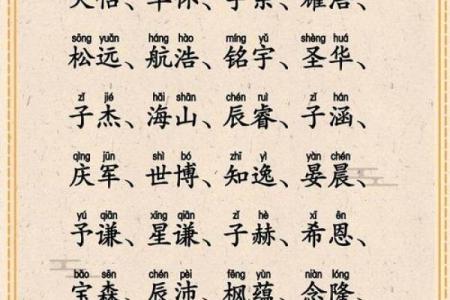 sōng yuǎn háng hào míng yǔ shèng huá
松远、航浩、铭宇、圣华、
zǐ jié hǎi shān chén ruì zǐ hán
子杰、海山、辰睿、子涵、
qìng jūn shì bó zhī yì yàn chén
庆军、世博、知逸、晏晨、
yú qiān xīng qiān zǐ hè xī ēn
予谦、星谦、子赫、希恩、
bǎo sēn chén pèi fēng yùn niàn lóng
宝森、辰沛、枫蕴、念隆、